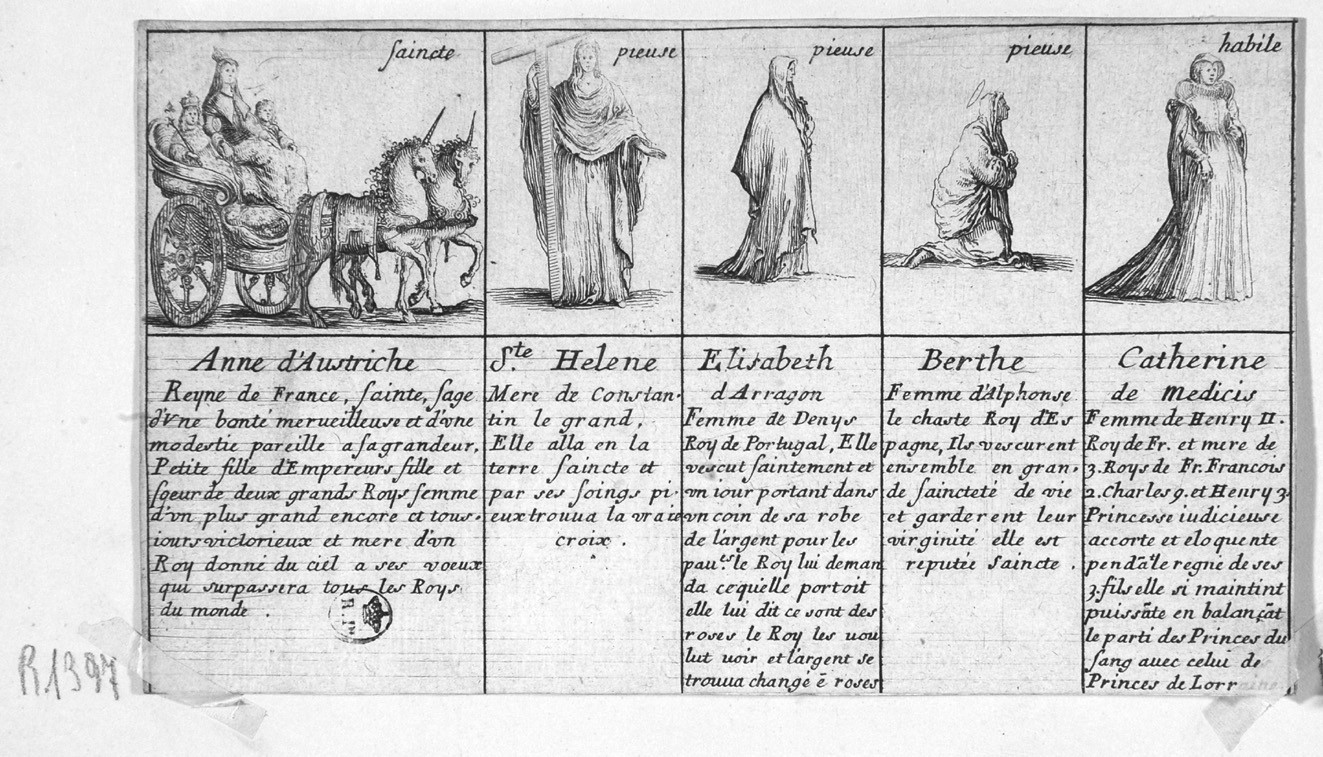 saincte
Anne d'Austriche
Reyne de France, sainte, sage
d'vne bonté merueilleuse et d'vne
modestie pareille a sa grandeur,
Petite fille d'Empereurs fille et
sœur de deux grands Roys femme
d'vn plus grand encore et tous-
iours victorieux et mere d'vn
Roy donné du ciel a ses voeux
qui surpassera tous les Roys
du monde .
pieuse
S.te Helene
Mere de Constan-
tin le grand,
Elle alla en la
terre saincte et
par ses soings pi-
eux trouua la vraie
croix .
pieuse
Elisabeth
d'Arragon
Femme de Denys
Roy de Portugal, Elle
vescut saintement et
vn iour portant dans
vn coin de sa robe
de l'argent pour les
pauu.es le Roy lui deman
da ce qu'elle portoit
elle lui dit ce sont des
roses le Roy les uou
lut uoir et l'argent se
trouua changé ē roses
pieuse
Berthe
Femme d'Alphonse
le chaste Roy d'Es
pagne, Ils vescurent
ensemble en gran-
de saincteté de vie
et garderent leur
virginité elle est
reputée saincte .
habile
Catherine
de Medicis
Femme de Henry II.
Roy de Fr. et mere de
3. Roys de Fr. Francois
2. Charles 9. et Henry 3.
Princesse iudicieuse
accorte et eloquente
pendāt le regne de ses
3. fils elle si maintint
puissāte en balançāt
le parti des Princes du
sang auec celui de
Princes de Lorraine
B. R.
R.1397